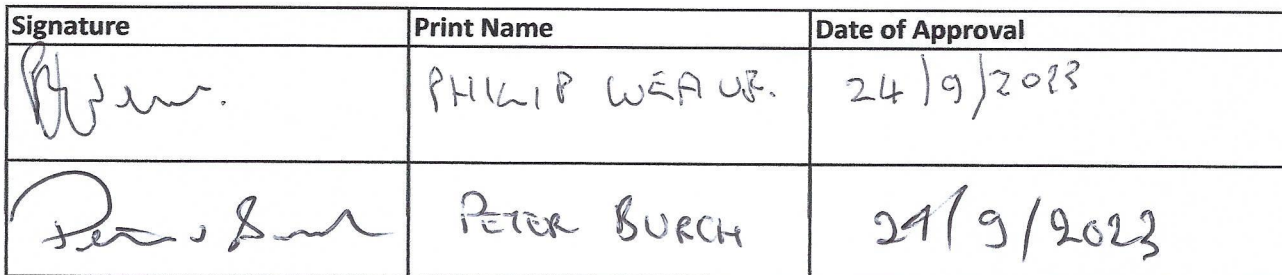 Signature Print Name Date of Approval
PHILIP WEAVER. 24/9/2023
PETER BURCH 24/9/2023